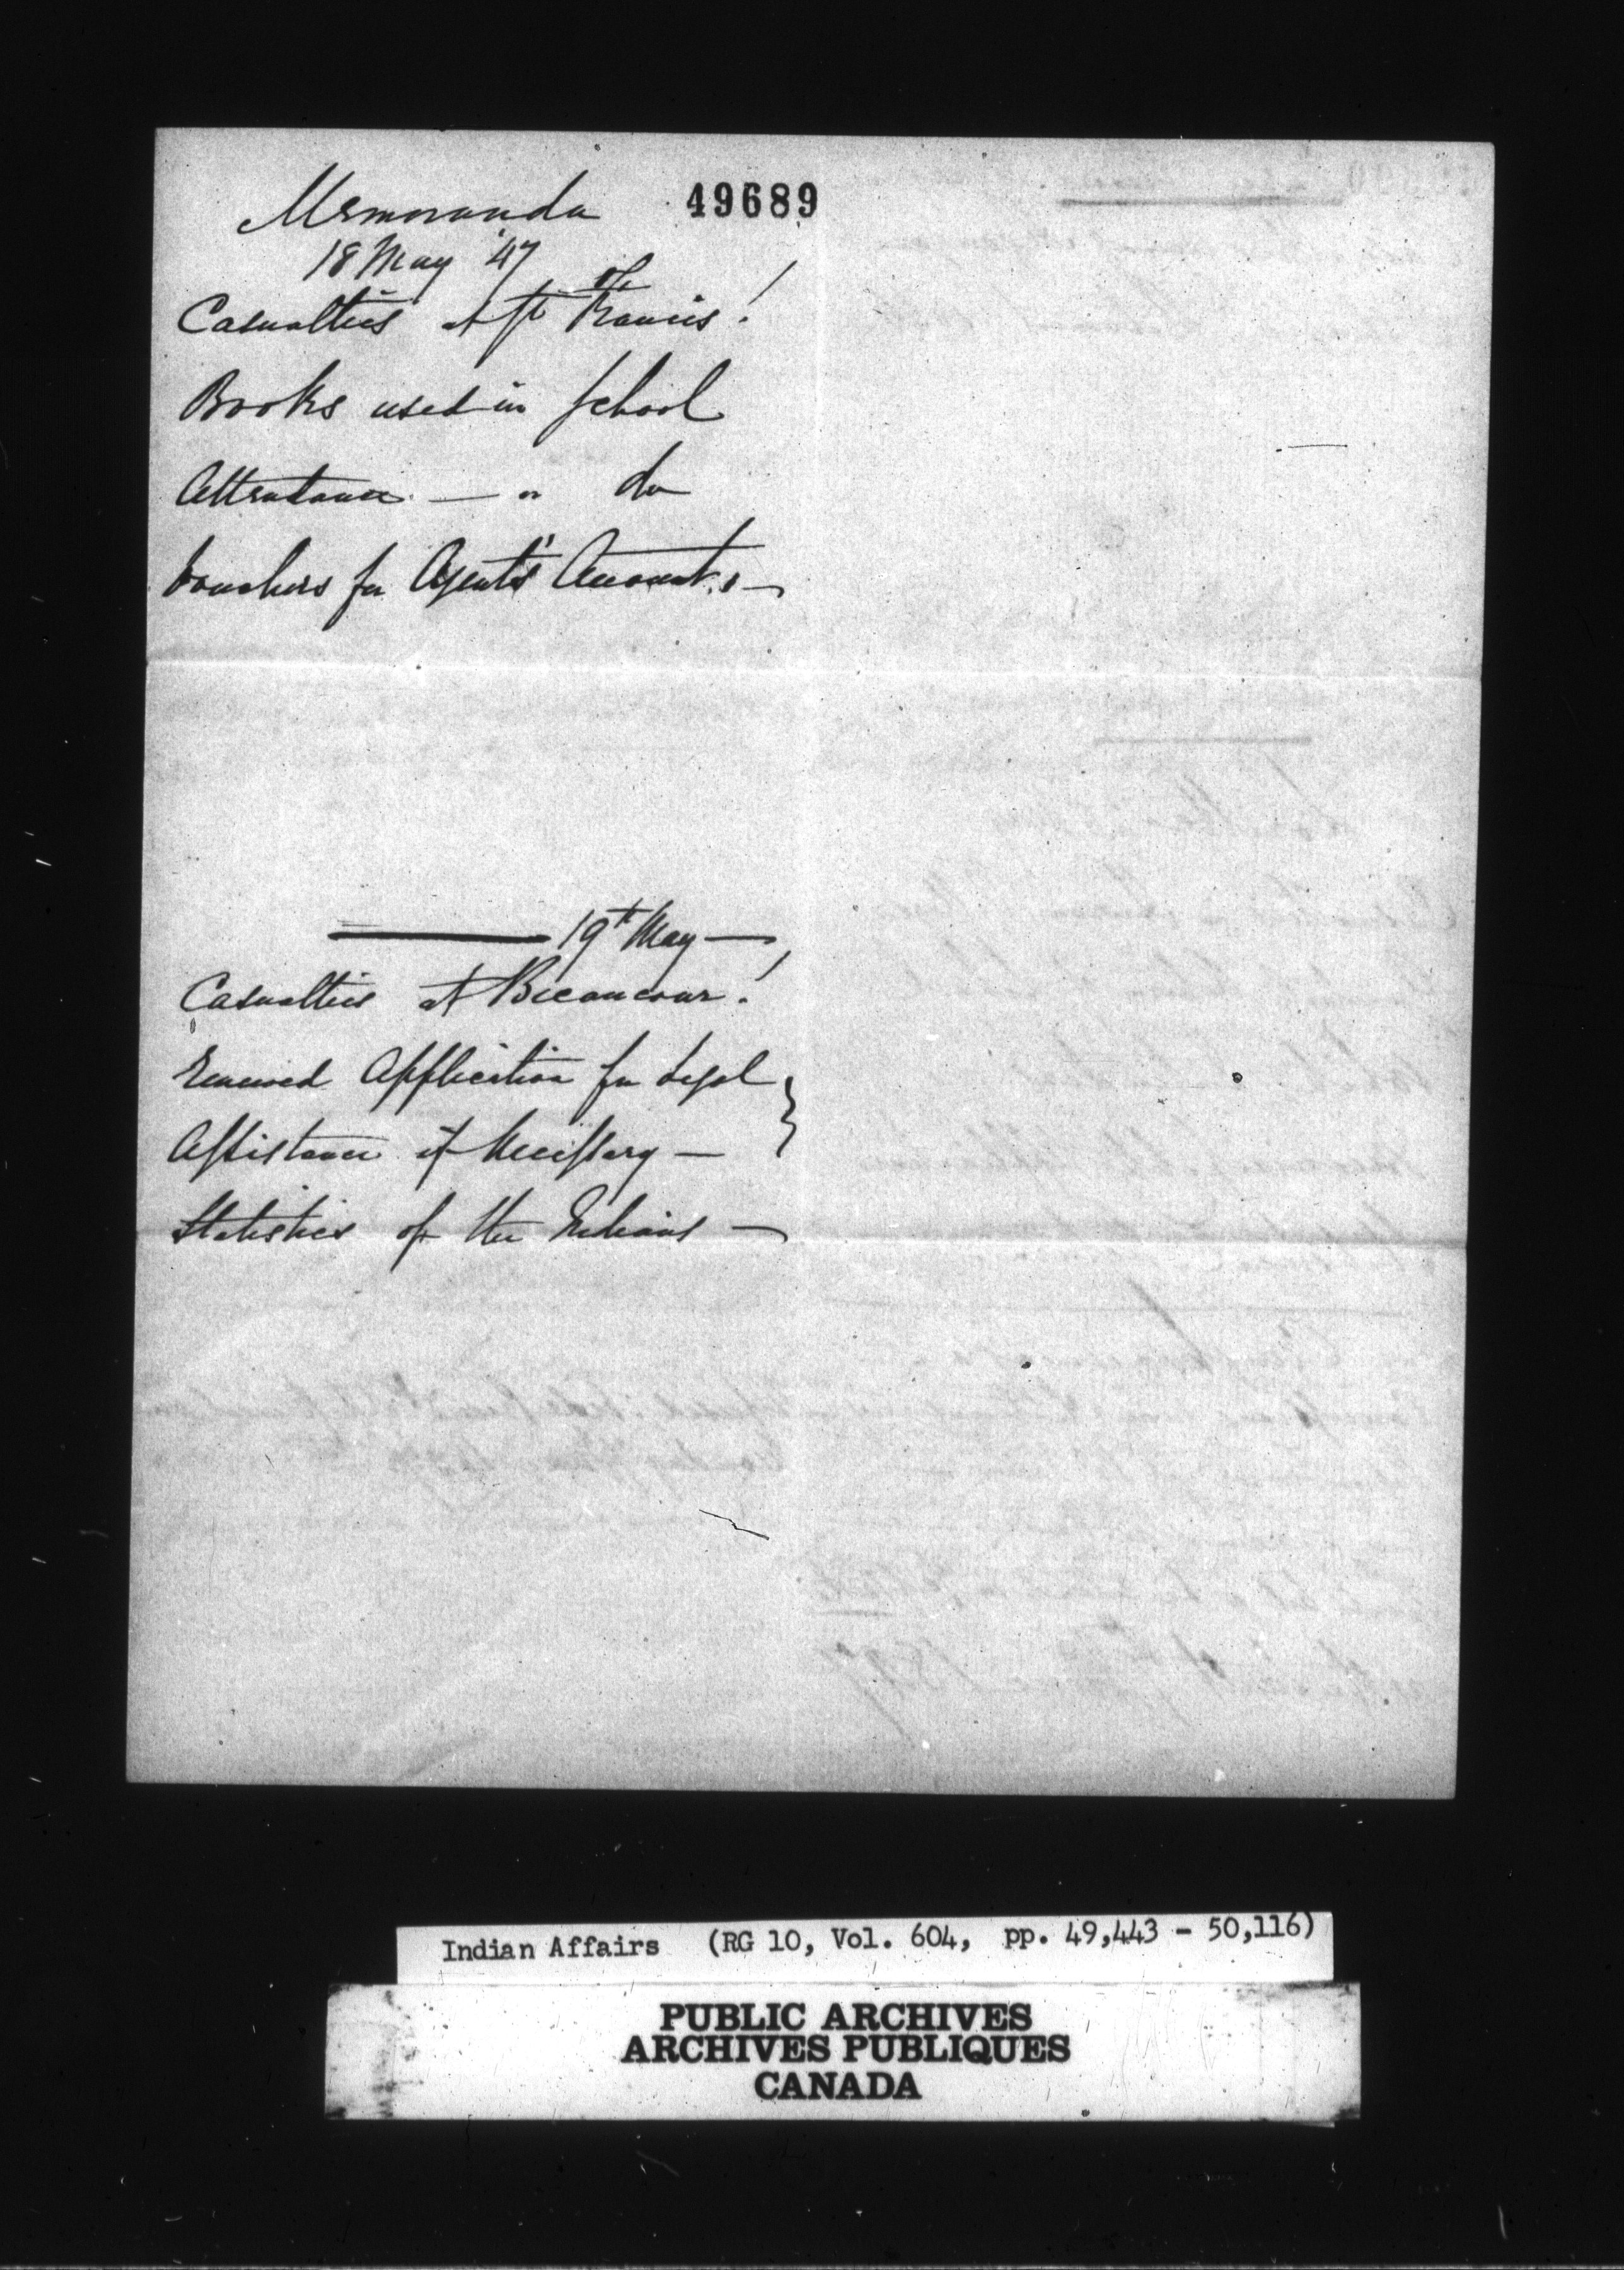 Memoranda 49689
18 May '47
Casualties at St Francis!
Books used in School
Attendance — " do
Vouchers for Agent's Accounts —
19th May —
Casualties at Becancour!
Renewed Application for Legal
Assistance if Necessary —
Statistics of the Indians —
Indian Affairs (RG 10, Vol. 604, pp. 49,443 - 50,116)
PUBLIC ARCHIVES
ARCHIVES PUBLIQUES
CANADA